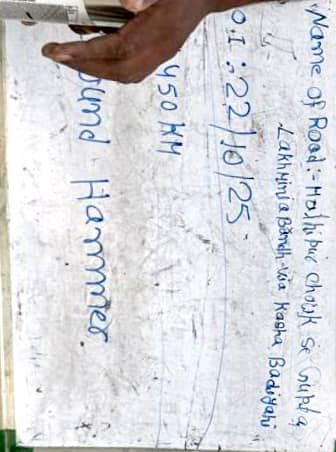 Name of Road:- Malhipur chowk se Gupta
Lakhminia Bandh via Kasha Badiyahi
O.I :- 22/10/25
450 MM
ound Hammer